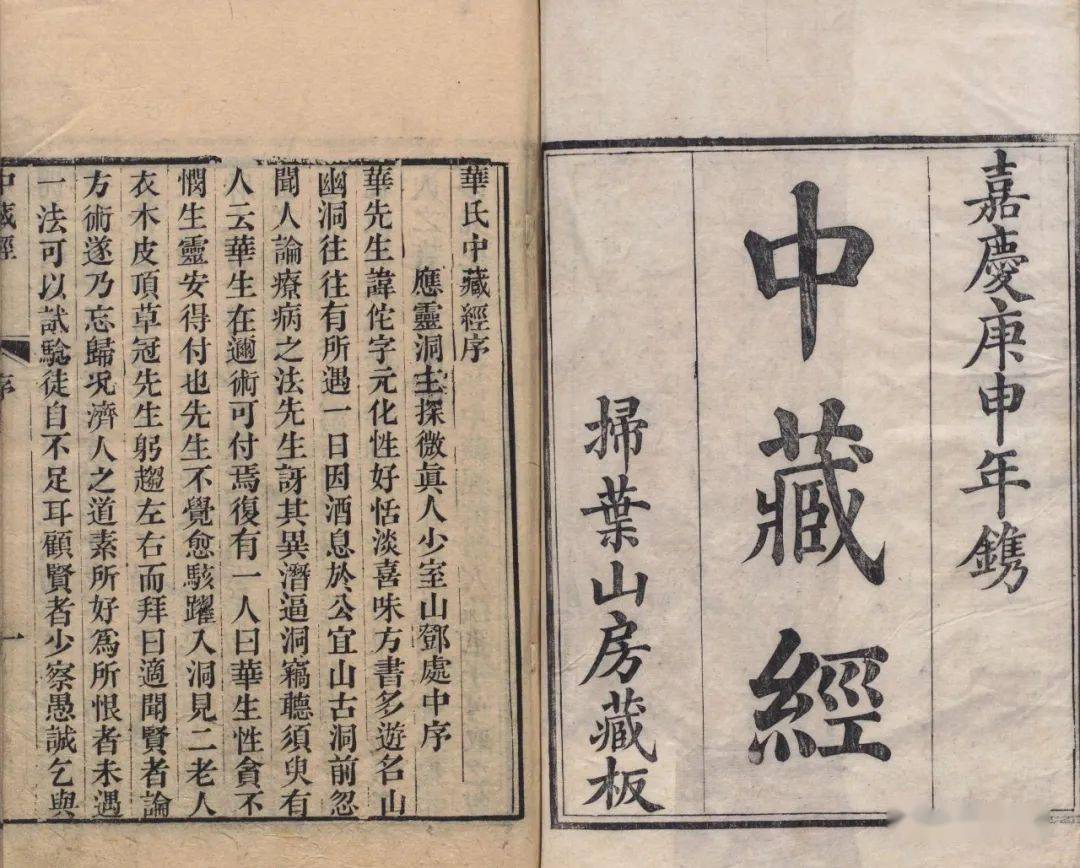 嘉慶庚申年鐫
中藏經
掃葉山房藏板
華氏中藏經序
應靈洞主探微眞人少室山鄧處中序
華先生諱佗字元化性好恬淡喜味方書多遊名山
幽洞往往有所遇一日因酒息於公宜山古洞前忽
聞人論療病之法先生訝其異潛逼洞竊聽須臾有
人云華生在邇術可付焉復有一人曰華生性貪不
憫生靈安得付也先生不覺愈駭躍入洞見二老人
衣木皮頂草冠先生躬趨左右而拜曰適聞賢者論
方術遂乃忘歸况濟人之道素所好爲所恨者未遇
一法可以試驗徒自不足耳顧賢者少察愚誠乞與
中藏經
序
一